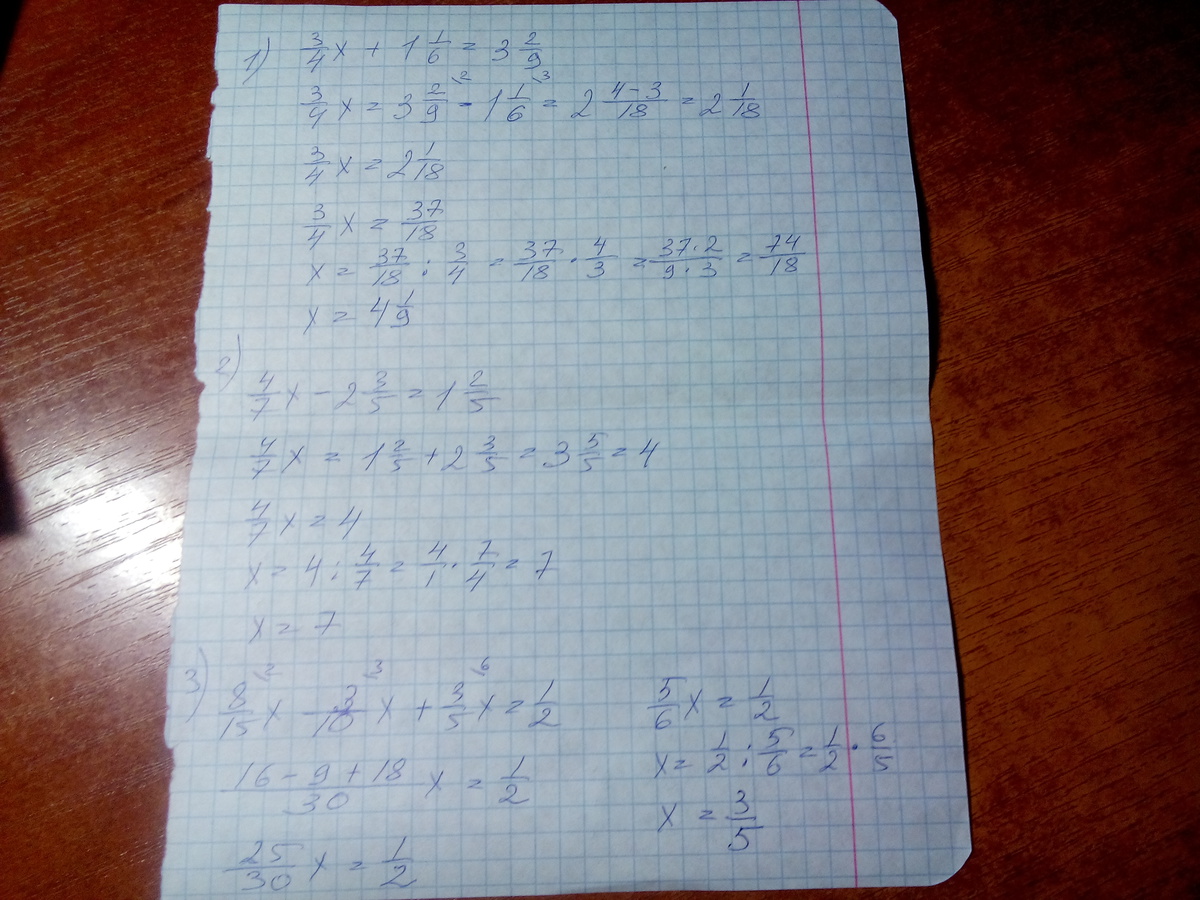 1) 3/4 x + 1 1/6 = 3 2/9
3/4 x = 3 2/9 \2 - 1 1/6 \3 = 2 4-3/18 = 2 1/18
3/4 x = 2 1/18
3/4 x = 37/18
x = 37/18 : 3/4 = 37/18 · 4/3 = 37·2/9·3 = 74/18
x = 4 1/9
2) 4/7 x - 2 3/5 = 1 2/5
4/7 x = 1 2/5 + 2 3/5 = 3 5/5 = 4
4/7 x = 4
x = 4 : 4/7 = 4/1 · 7/4 = 7
x = 7
3) 8/15 \2 x - 3/10 \3 x + 3/5 \6 x = 1/2
16-9+18/30 x = 1/2
25/30 x = 1/2
5/6 x = 1/2
x = 1/2 : 5/6 = 1/2 · 6/5
x = 3/5